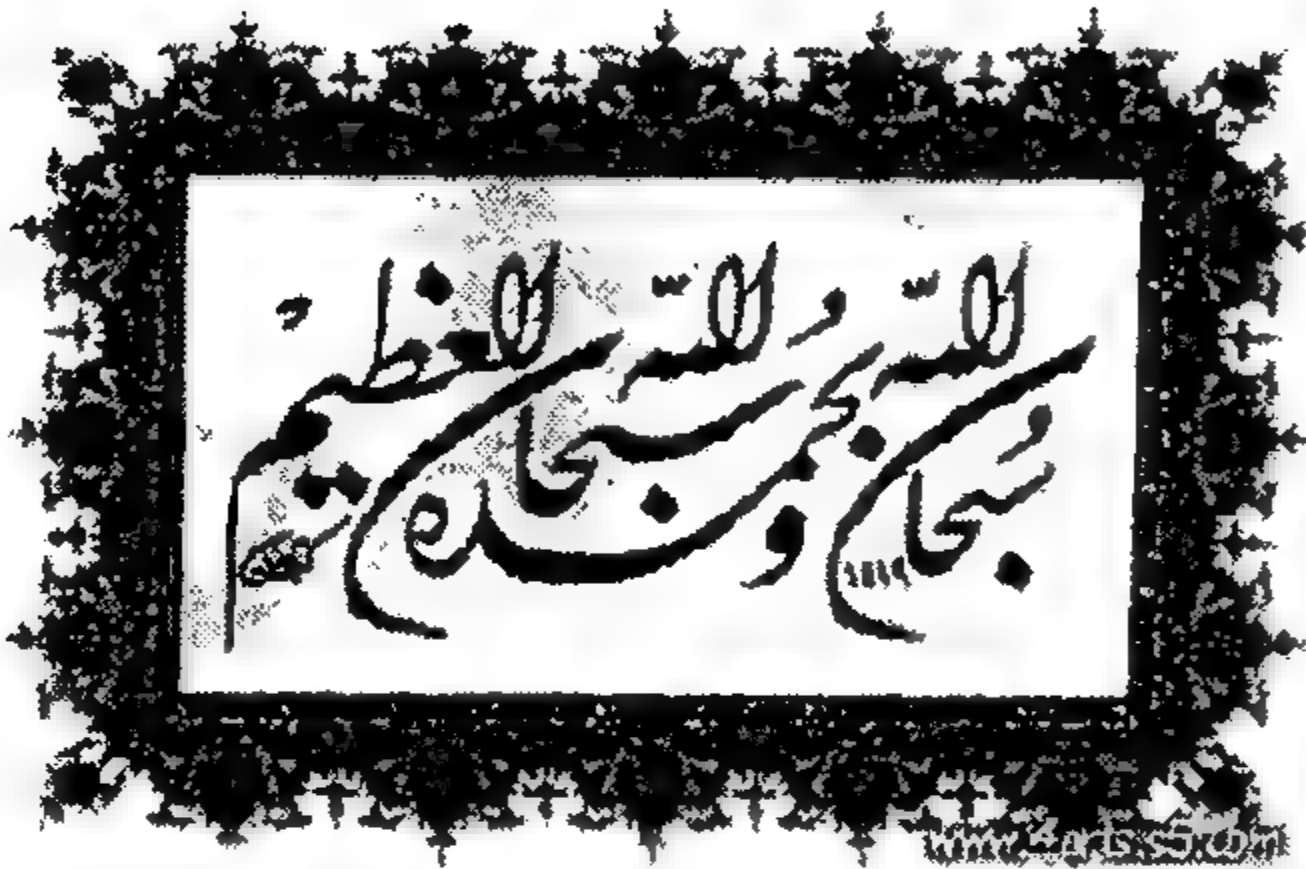 سُبحان الله وبحمده سبحان الله العظيم